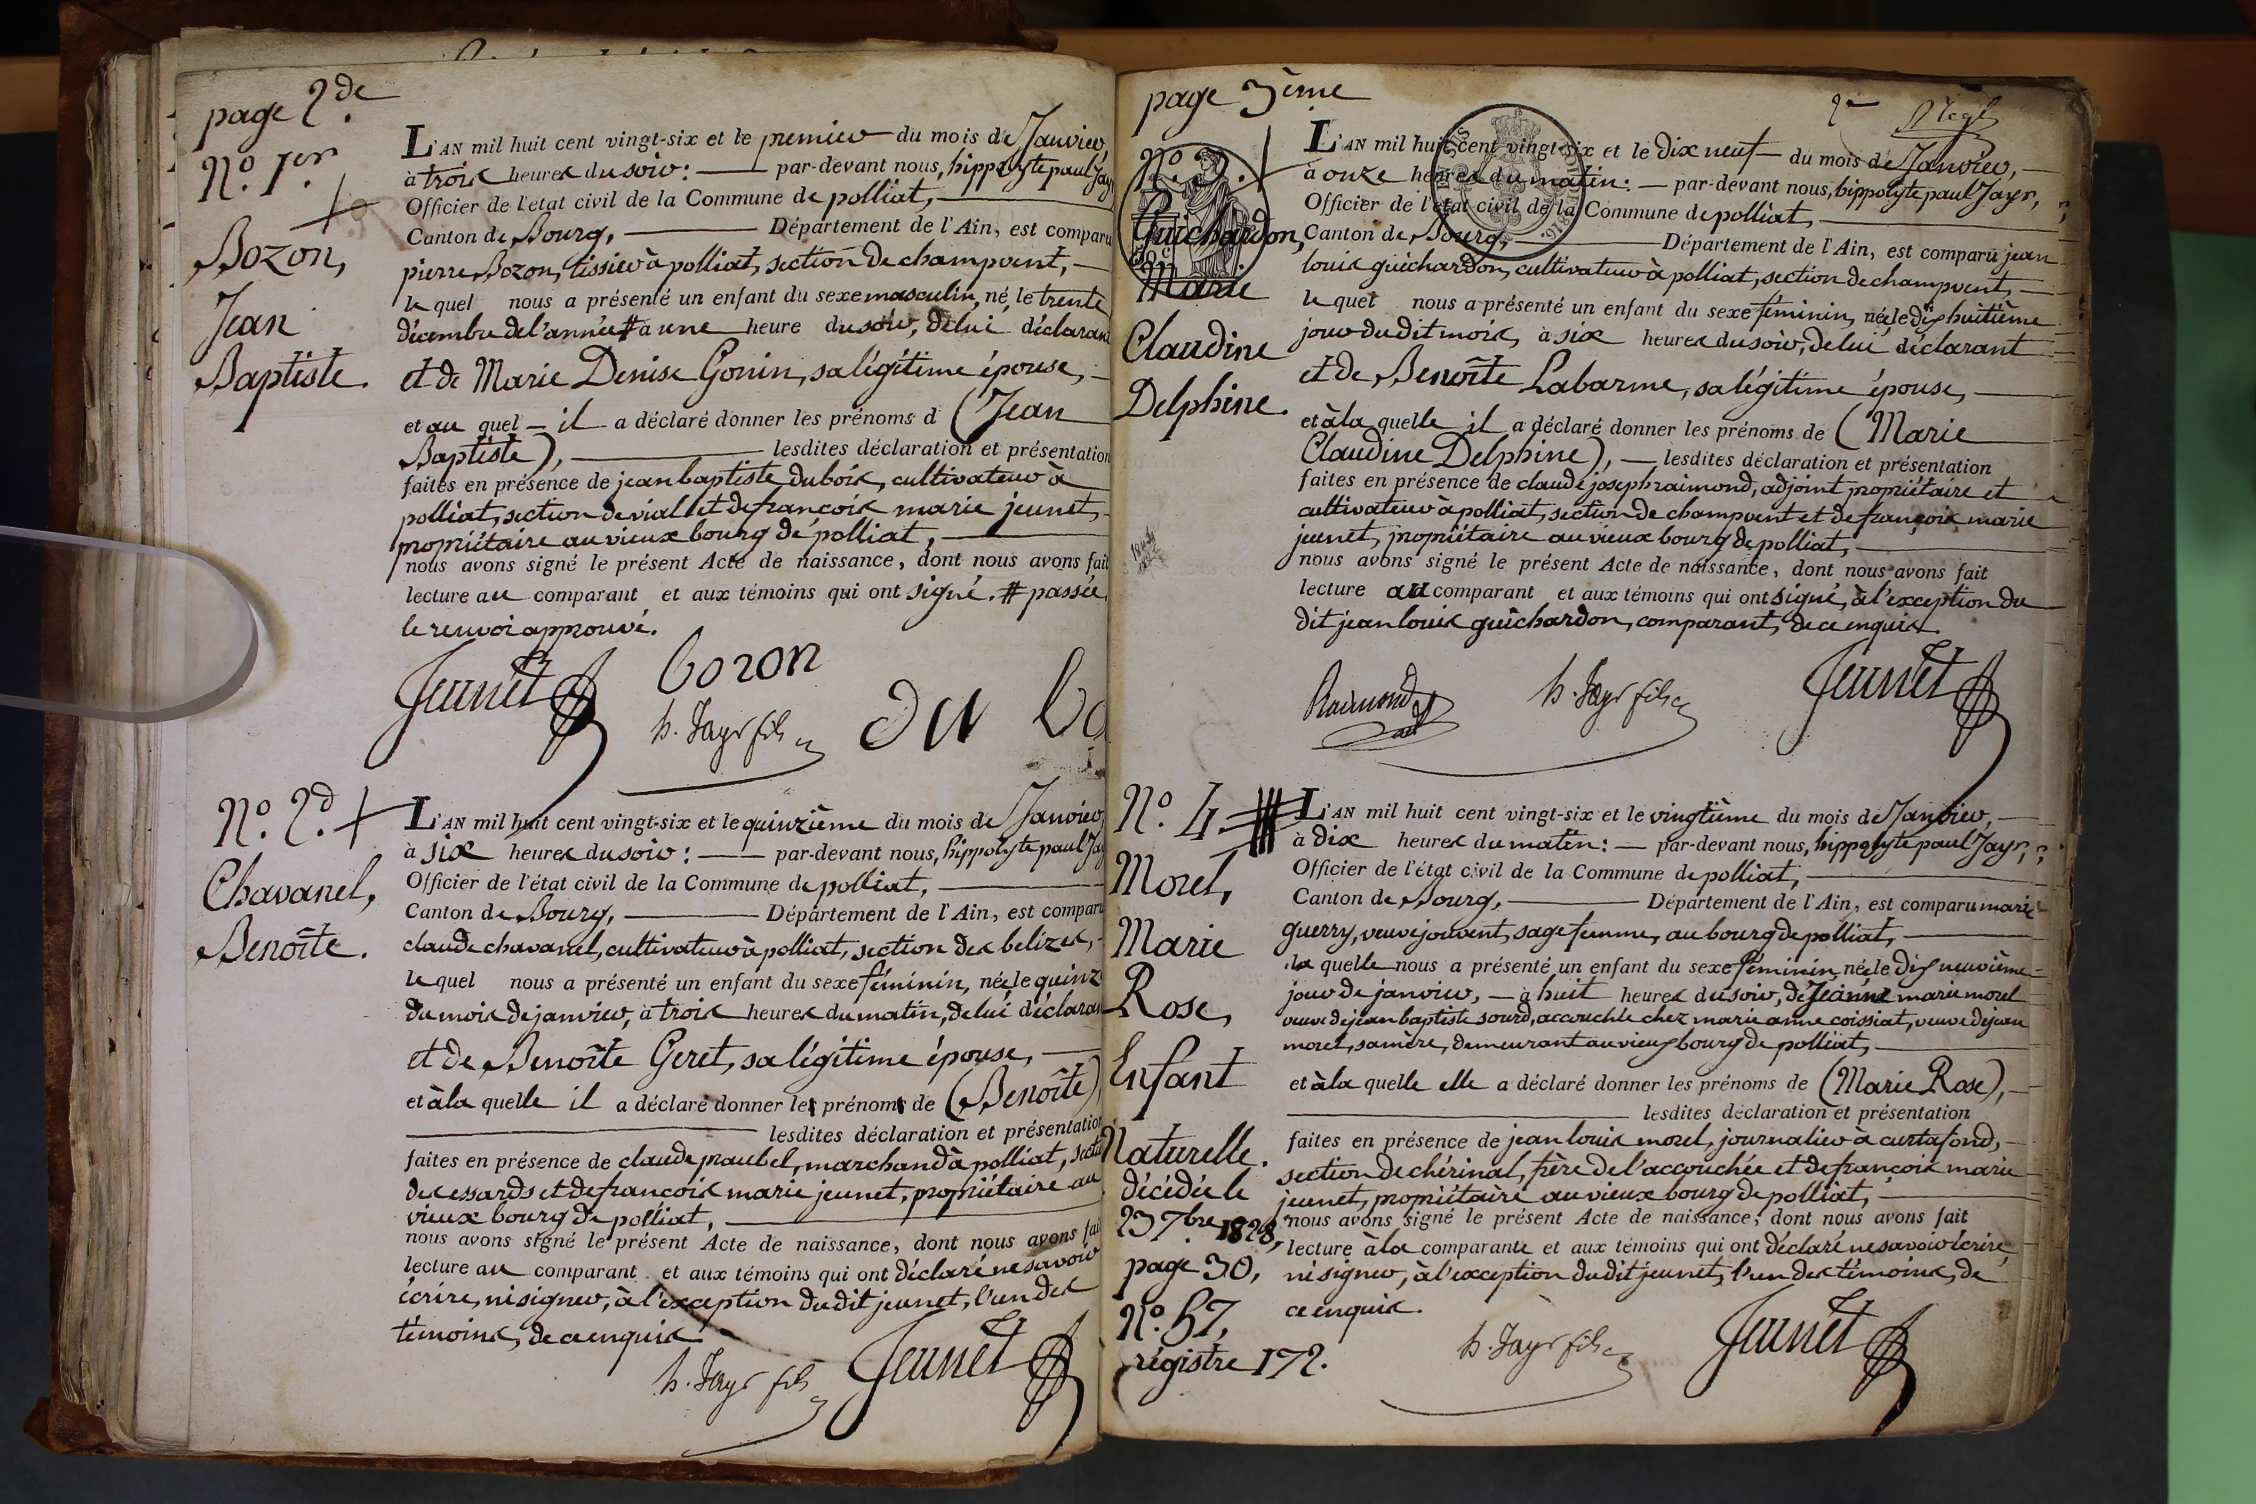 page 2.de
N.o 1.er
Bozon,
Jean
Baptiste.
L'AN mil huit cent vingt-six et le premier du mois de Janvier,
à trois heures du soir : par-devant nous, hippolyte paul Jay
Officier de l'état civil de la Commune de polliat,
Canton de Bourg, Département de l'Ain, est comparu
pierre Bozon, tissier à polliat, section de champvent,
le quel nous a présenté un enfant du sexe masculin, né, le trente
décembre de l'année # à une heure du soir, de lui déclarant
et de Marie Denise Gonin, sa légitime épouse,
et au quel il a déclaré donner les prénoms d (Jean
Baptiste), lesdites déclaration et présentation
faites en présence de jean baptiste dubois, cultivateur à
polliat, section de vial et de françois marie jeunet,
propriétaire au vieux bourg de polliat,
nous avons signé le présent Acte de naissance, dont nous avons fait
lecture au comparant et aux témoins qui ont signé. # passée
le renvoi approuvé.
Jeunet bozon
h. Jayr fils du bo
N.o 2.d
Chavanel,
Benoîte.
L'AN mil huit cent vingt-six et le quinzième du mois de Janvier
à six heures du soir : par-devant nous, hippolyte paul Jay
Officier de l'état civil de la Commune de polliat,
Canton de Bourg, Département de l'Ain, est comparu
claude chavanel, cultivateur à polliat, section des belizes,
le quel nous a présenté un enfant du sexe féminin, née le quinze
du mois de janvier, à trois heures du matin, de lui déclaran
et de Benoîte Geret, sa légitime épouse,
et à la quelle il a déclaré donner les prénoms de (Benoîte),
lesdites déclaration et présentation
faites en présence de claude praubel, marchand à polliat, secti
des essards et de françois marie jeunet, propriétaire au
vieux bourg de polliat,
nous avons signé le présent Acte de naissance, dont nous avons fai
lecture au comparant et aux témoins qui ont déclaré ne savoir
écrire, ni signer, à l'exception du dit jeunet, l'un des
témoins, de ce enquis.
h. Jayr fils Jeunet
page 3ème
N.o 3.
Guichardon,
Marie
Claudine
Delphine.
L'AN mil huit cent vingt-six et le dix neuf du mois de Janvier,
à onze heures du matin : par-devant nous, hippolyte paul Jayr,
Officier de l'état civil de la Commune de polliat,
Canton de Bourg, Département de l'Ain, est comparu jean
louis guichardon, cultivateur à polliat, section de champvent,
le quel nous a présenté un enfant du sexe féminin, née le dix huitième
jour du dit mois, à six heures du soir, de lui déclarant
et de Benoîte Labarme, sa légitime épouse,
et à la quelle il a déclaré donner les prénoms de (Marie
Claudine Delphine), lesdites déclaration et présentation
faites en présence de claude joseph raimond, adjoint propriétaire et
cultivateur à polliat, section de champvent et de françois marie
jeunet, propriétaire au vieux bourg de polliat,
nous avons signé le présent Acte de naissance, dont nous avons fait
lecture au comparant et aux témoins qui ont signé, à l'exception du
dit jean louis guichardon, comparant, de ce enquis.
Raimond h. Jayr fils Jeunet
adt
N.o 4.
Morel,
Marie
Rose,
Enfant
Naturelle.
décédée le
23 7bre 1828,
page 30,
N.o 57,
régistre 172.
L'AN mil huit cent vingt-six et le vingtième du mois de Janvier,
à dix heures du matin : par-devant nous, hippolyte paul Jayr,
Officier de l'état civil de la Commune de polliat,
Canton de Bourg, Département de l'Ain, est comparu marie
guerry, veuve jouvent, sage femme, au bourg de polliat,
la quelle nous a présenté un enfant du sexe féminin, née le dix neuvième
jour de janvier, à huit heures du soir, de Jeanne marie morel
veuve de jean baptiste sourd, accouchée chez marie anne coissiat, veuve de jean
morel, sa mère, demeurant au vieux bourg de polliat,
et à la quelle elle a déclaré donner les prénoms de (Marie Rose),
lesdites déclaration et présentation
faites en présence de jean louis morel, journalier à curtafond,
section de chérinal, frère de l'accouchée et de françois marie
jeunet, propriétaire au vieux bourg de polliat,
nous avons signé le présent Acte de naissance, dont nous avons fait
lecture à la comparante et aux témoins qui ont déclaré ne savoir écrire,
ni signer, à l'exception du dit jeunet, l'un des témoins, de
ce enquis.
h. Jayr fils Jeunet